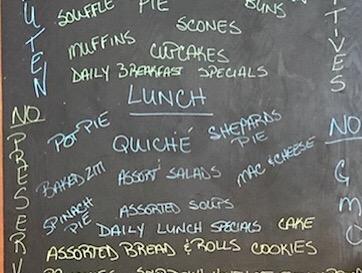 SOUFFLE PIE BUNS
SCONES
MUFFINS CUPCAKES
DAILY BREAKFAST SPECIALS
LUNCH
POT PIE QUICHÉ SHEPARDS PIE
BAKED ZITI ASSORT SALADS MAC & CHEESE
SPINACH PIE ASSORTED SOUPS
DAILY LUNCH SPECIALS CAKE
ASSORTED BREAD & ROLLS COOKIES
UTEN
NO
PRESERV
TIVES
NO
GMO